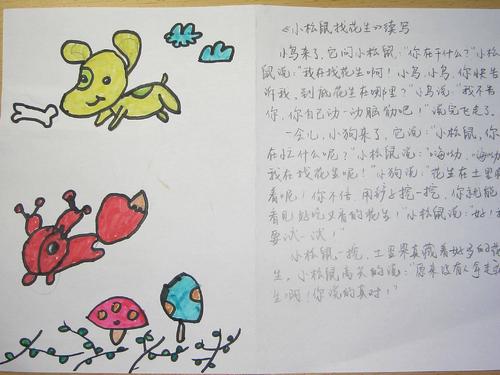 《小松鼠找花生》续写
小鸟来了,它问小松鼠:“你在干什么?”小松
鼠说:“我在找花生啊!小鸟,小鸟,你快告
诉我,到底花生在哪里?”小鸟说:“我不告
你,你自己动一动脑筋吧!”说完飞走了。
一会儿,小狗来了,它说:“小松鼠,你
在忙什么呢?”小松鼠说:“嗨呦,嗨呦
我在找花生呢!”小狗说:“花生在土里
着呢!你不信,用铲子挖一挖,你就能
看见好吃又香的花生!”小松鼠说:“好!
要试一试!”
小松鼠一挖,土里果真藏着好多的花
生。小松鼠高兴的说:“原来没有人拿走
生啊!你说的真对!”